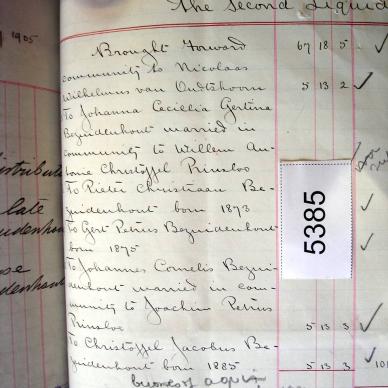 The Second Liquid
1905
Brought Forward 67 18 5
community to Nicolaas
Wilhelmus van Oudtshoorn 5 13 2
To Johanna Cecillia Gertina
Bezuidenhout married in
community to Willem An-
tonie Christoffel Prinsloo
To Pieter Christiaan Be-
zuidenhout born 1873
To Gert Petrus Bezuidenhout
born 1875
To Johannes Cornelis Bezui-
denhout married in com-
munity to Joachim Petrus
Prinsloo 5 13 3
To Christoffel Jacobus Be-
zuidenhout born 1885 5 13 3
5385
late